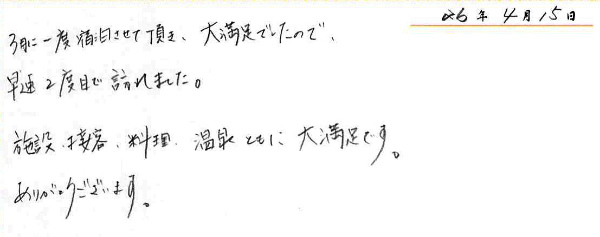 26年4月15日
3月に一度宿泊させて頂き、大満足でしたので、
早速2度目で訪れました。
施設、接客、料理、温泉ともに大満足です。
ありがとうございます。